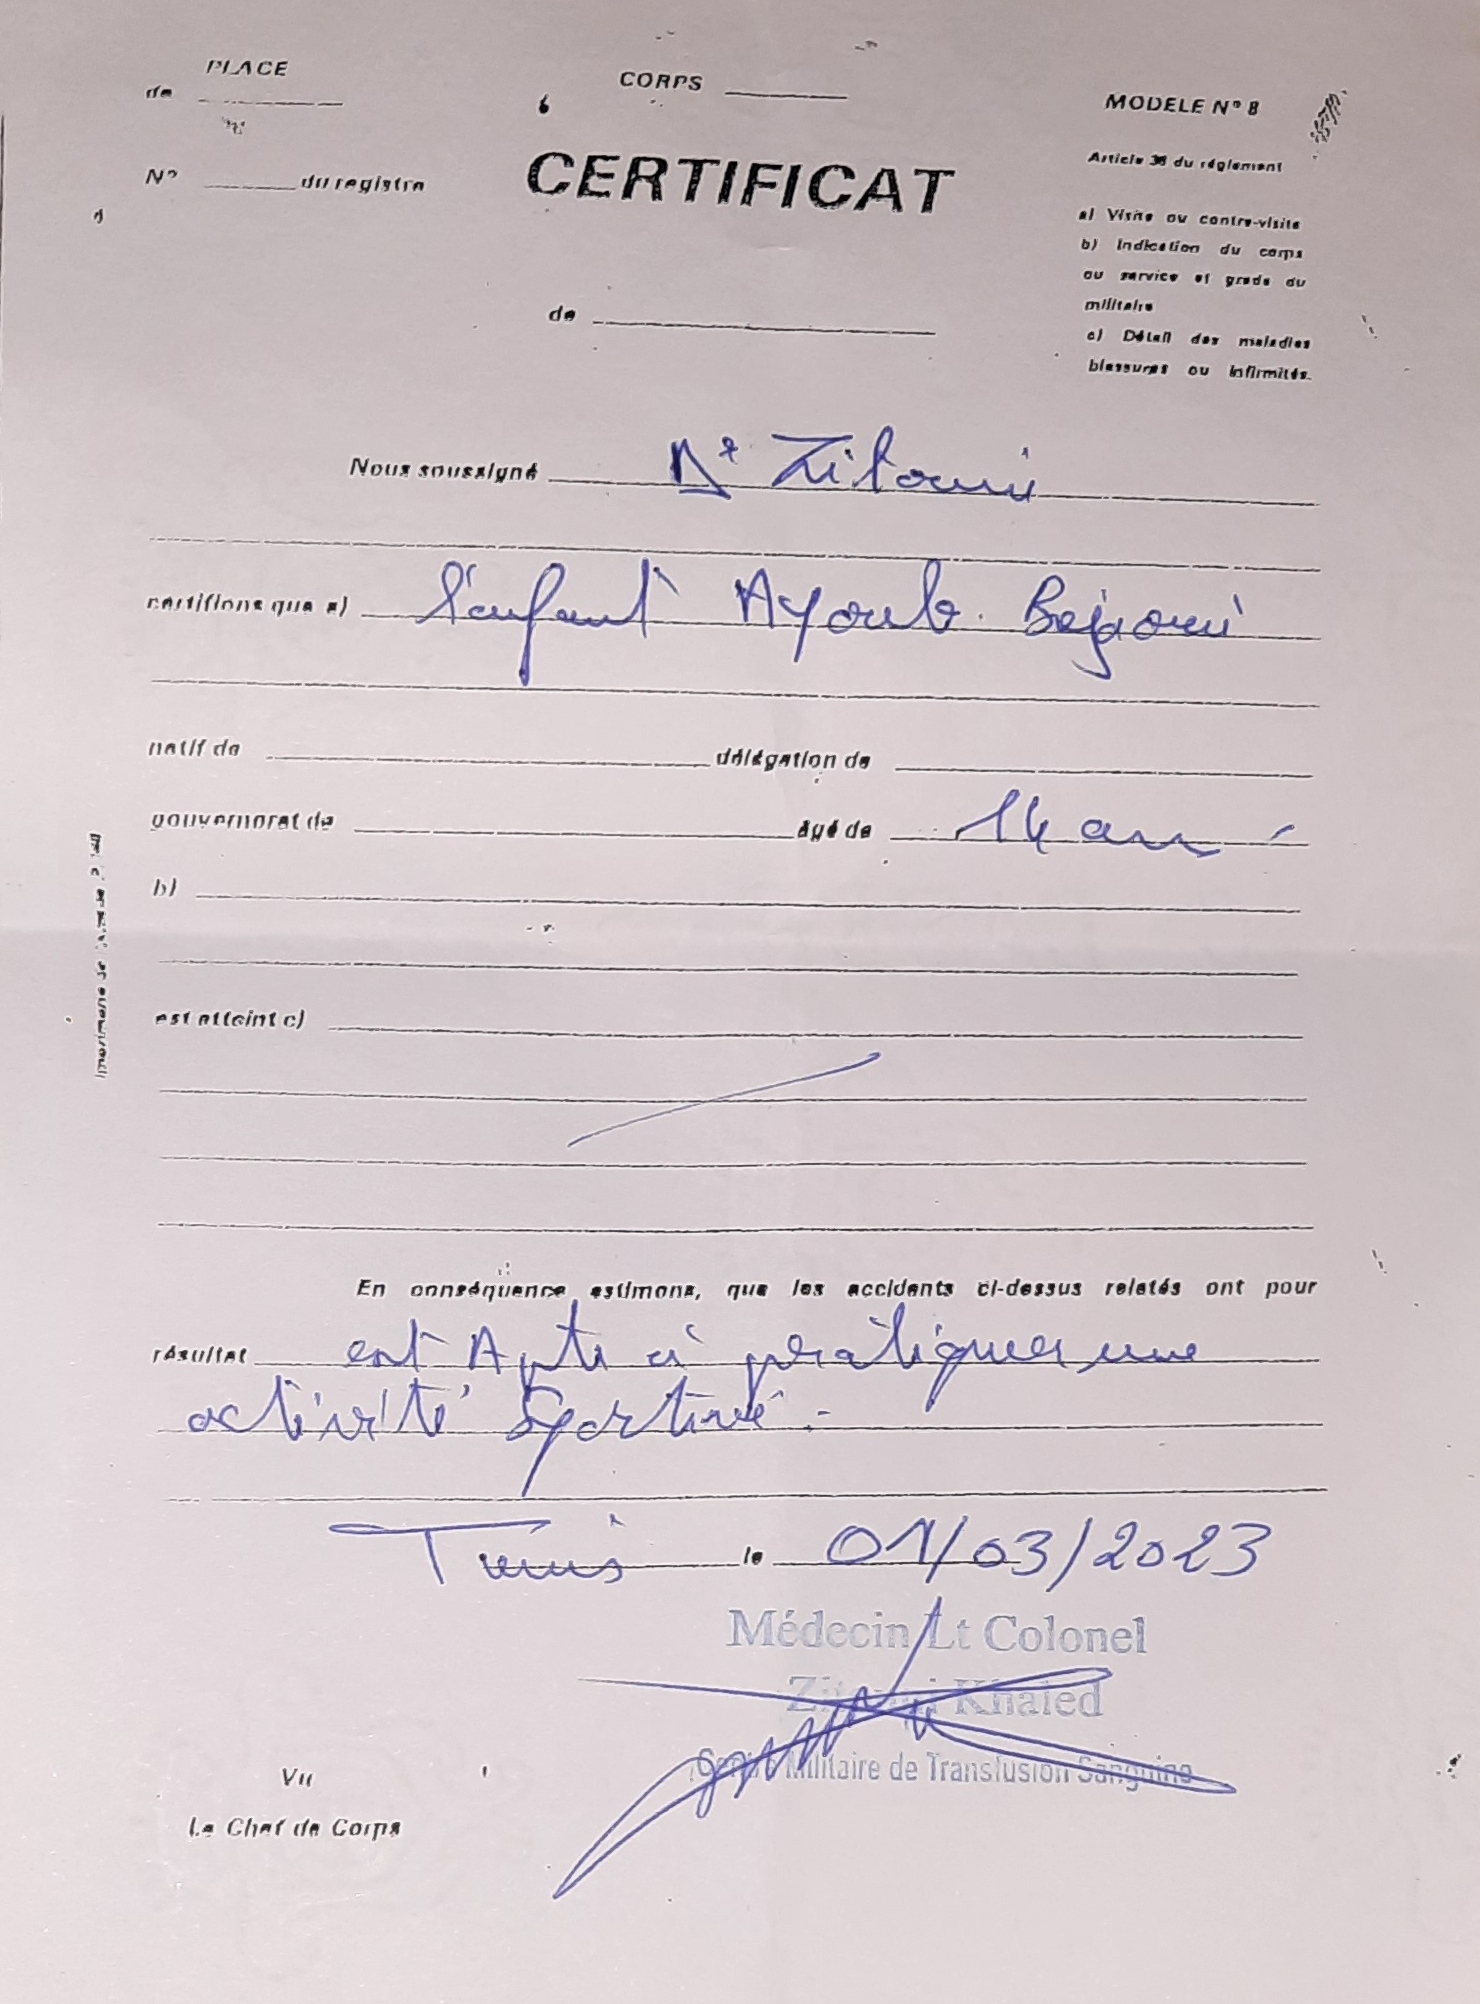 PLACE
de
CORPS
MODELE N° 8
N° du registre
CERTIFICAT
Article 36 du réglement
a) Visite ou contre-visite
b) Indication du corps
ou service et grade du
militaire
c) Détail des maladies
blessures ou infirmités.
de
Nous soussigné Dr Zitouni
certifions que a) l'enfant Ayoub Bejaoui
natif de délégation de
gouvernorat de âgé de 14 ans
b)
est atteint c)
En conséquence estimons, que les accidents ci-dessus relatés ont pour
résultat est Apte à pratiquer une
activité Sportive.-
Tunis le 01/03/2023
Médecin Lt Colonel
Zitouni Khaled
Centre Militaire de Transfusion Sanguine
Vu
Le Chef de Corps